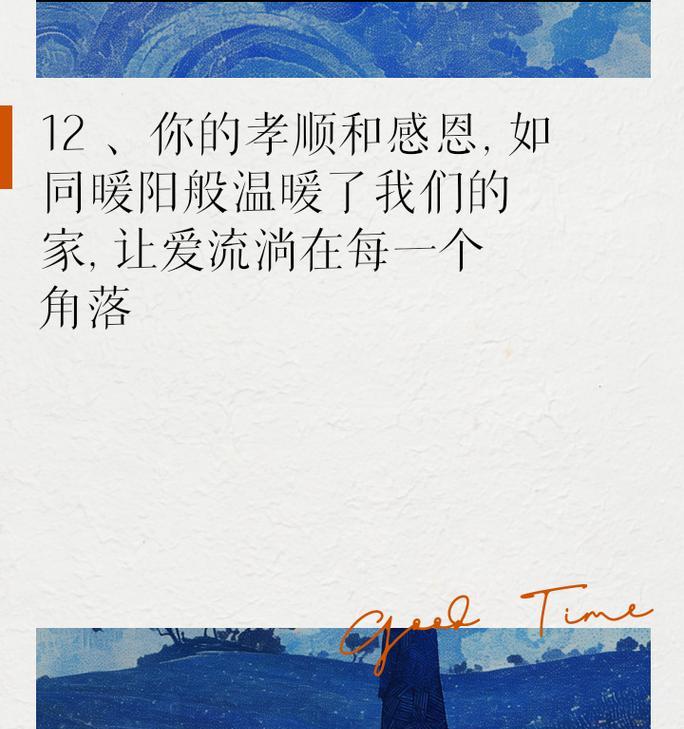 12 、你的孝顺和感恩, 如
同暖阳般温暖了我们的
家, 让爱流淌在每一个
角落
Good Time